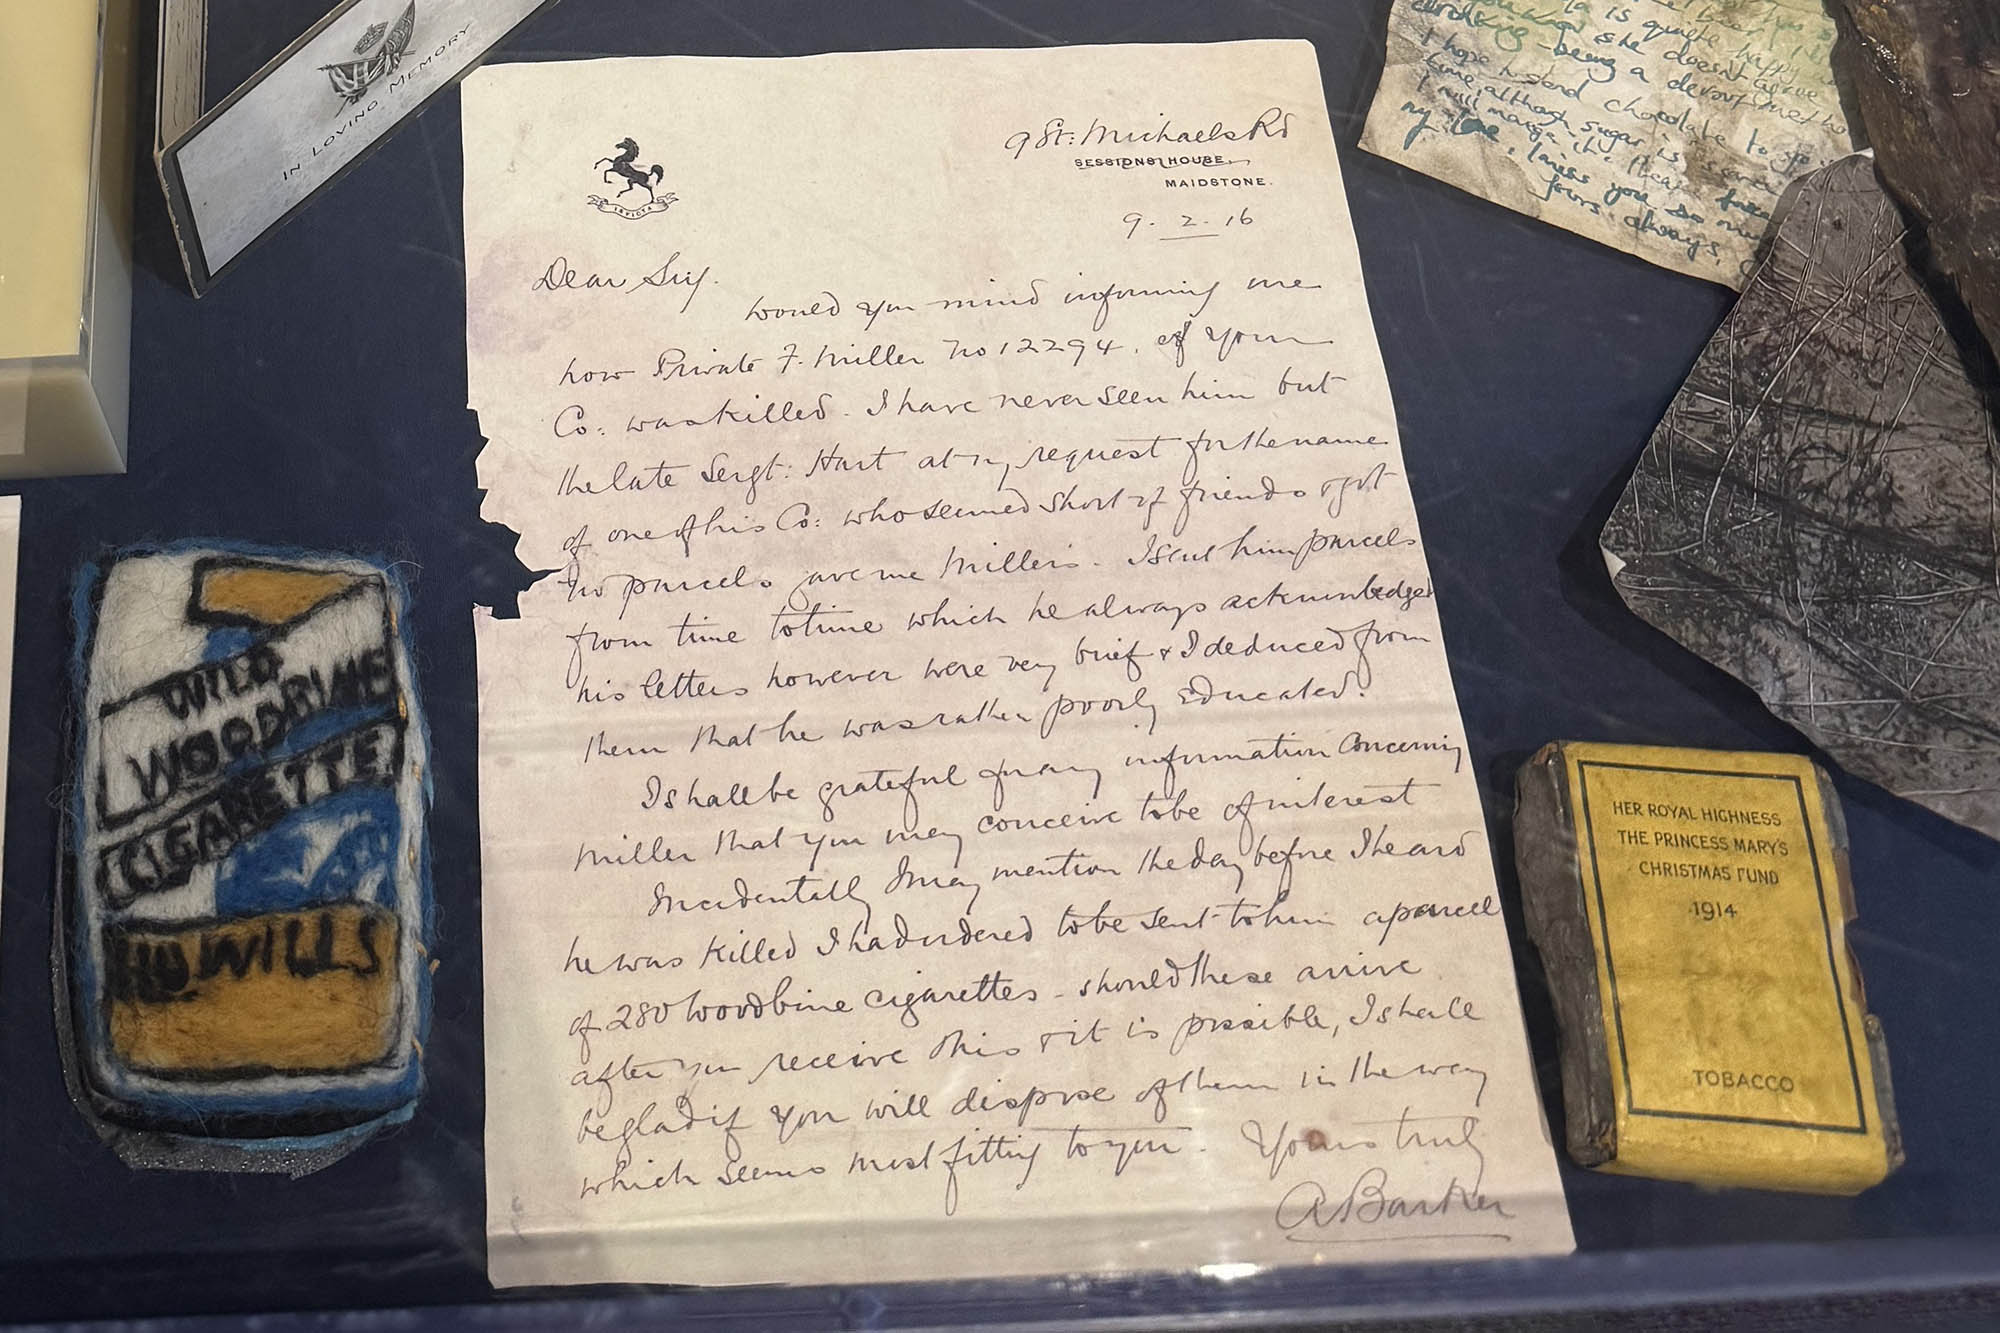 IN LOVING MEMORY
INVICTA
9 St: Michaels Rd
SESSIONS HOUSE,
MAIDSTONE.
9. 2. 16
Dear Sir,
Would you mind informing me
how Private F. Miller No 12294. of your
Co: was killed. I have never seen him but
the late Sergt: Hart at my request for the name
of one of his Co: who seemed short of friends & got
no parcels gave me Millers. I sent him parcels
from time to time which he always acknowledged
his letters however were very brief & I deduced from
them that he was rather poorly educated.
I shall be grateful for any information concerning
Miller that you may conceive to be of interest
Incidentally I may mention the day before I heard
he was killed I had ordered to be sent to him a parcel
of 280 Woodbine cigarettes - should these arrive
after you receive this & it is possible, I shall
be glad if you will dispose of them in the way
which seems most fitting to you. Yours truly
A Barker
WILD
WOODBINE
CIGARETTE
WILLS
is quite happy
she doesn't
being a devout
I hope to send chocolate to you
time, although sugar is
I will manage it. Please
my love, I miss you so
Yours always,
HER ROYAL HIGHNESS
THE PRINCESS MARY'S
CHRISTMAS FUND
1914
TOBACCO